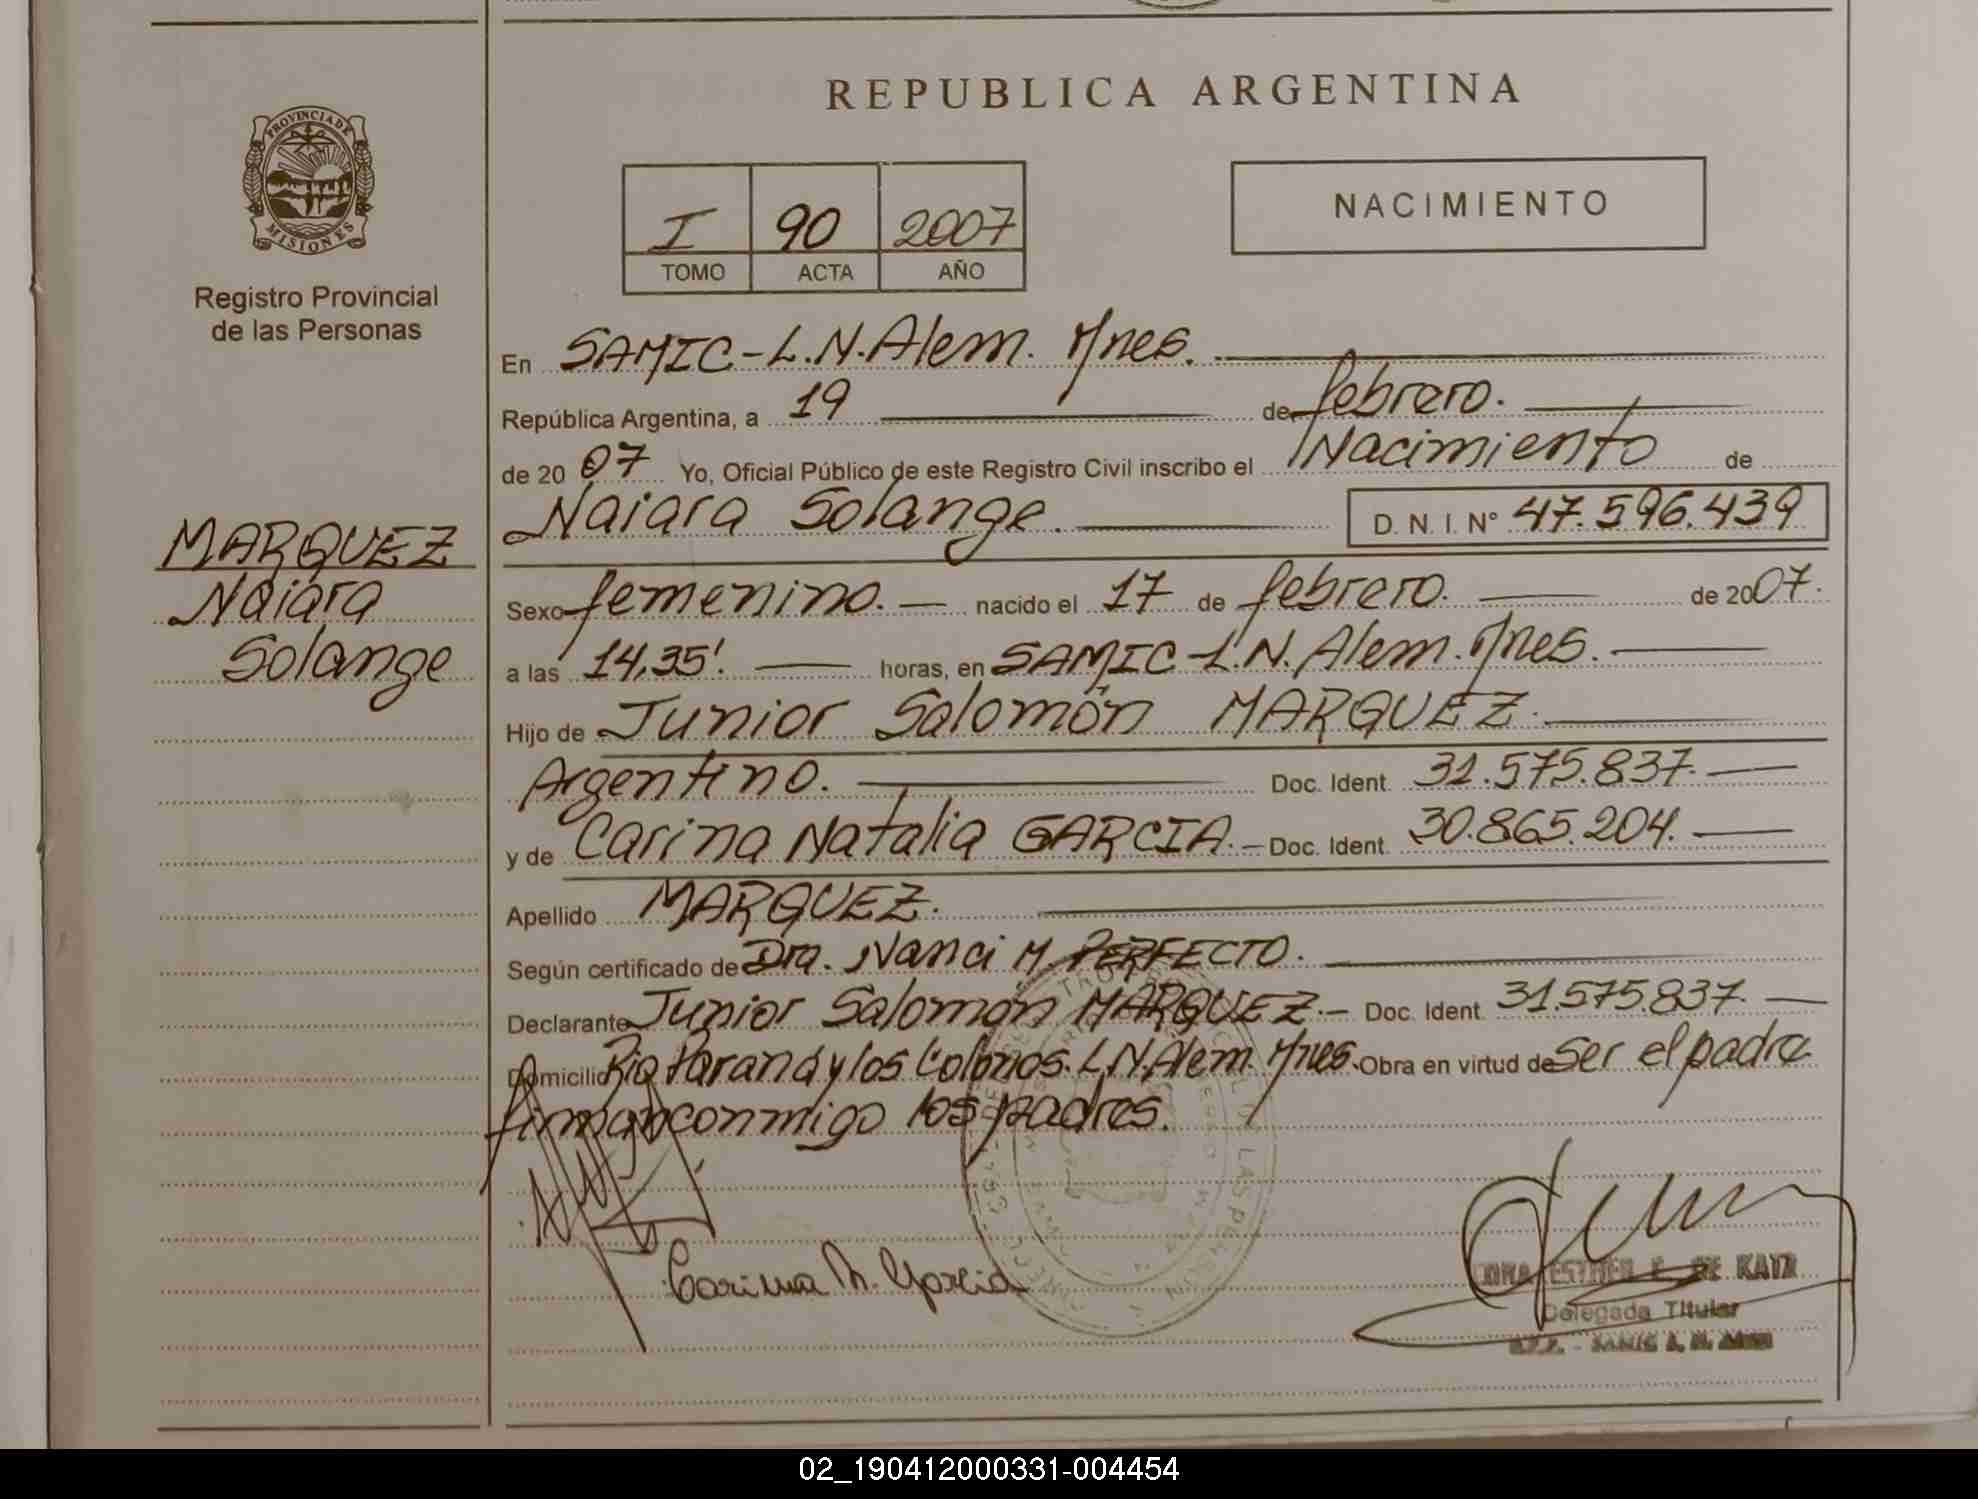 REPUBLICA ARGENTINA
PROVINCIA DE
MISIONES
Registro Provincial
de las Personas
I 90 2007
TOMO ACTA AÑO
NACIMIENTO
En SAMIC-L.N.Alem. Mnes.
República Argentina, a 19 de febrero.
de 2007 Yo, Oficial Público de este Registro Civil inscribo el Nacimiento de
Naiara Solange. D. N. I. N° 47.596.439
MARQUEZ
Naiara
Solange
Sexo femenino. nacido el 17 de febrero. de 2007.
a las 14,35'. horas, en SAMIC-L.N.Alem. Mnes.
Hijo de Junior Salomón MARQUEZ.
Argentino. Doc. Ident. 31.575.837.
y de Carina Natalia GARCIA. Doc. Ident. 30.865.204.
Apellido MARQUEZ.
Según certificado de Dra. Nanci M. PERFECTO.
Declarante Junior Salomón MARQUEZ. Doc. Ident. 31.575.837.
Domicilio Rio Paraná y los Colonos. L.N.Alem. Mnes. Obra en virtud de Ser el padre
firman conmigo los padres.
Carina N. Garcia
ESTHER E. DE KATZ
Delegada Titular
02_190412000331-004454